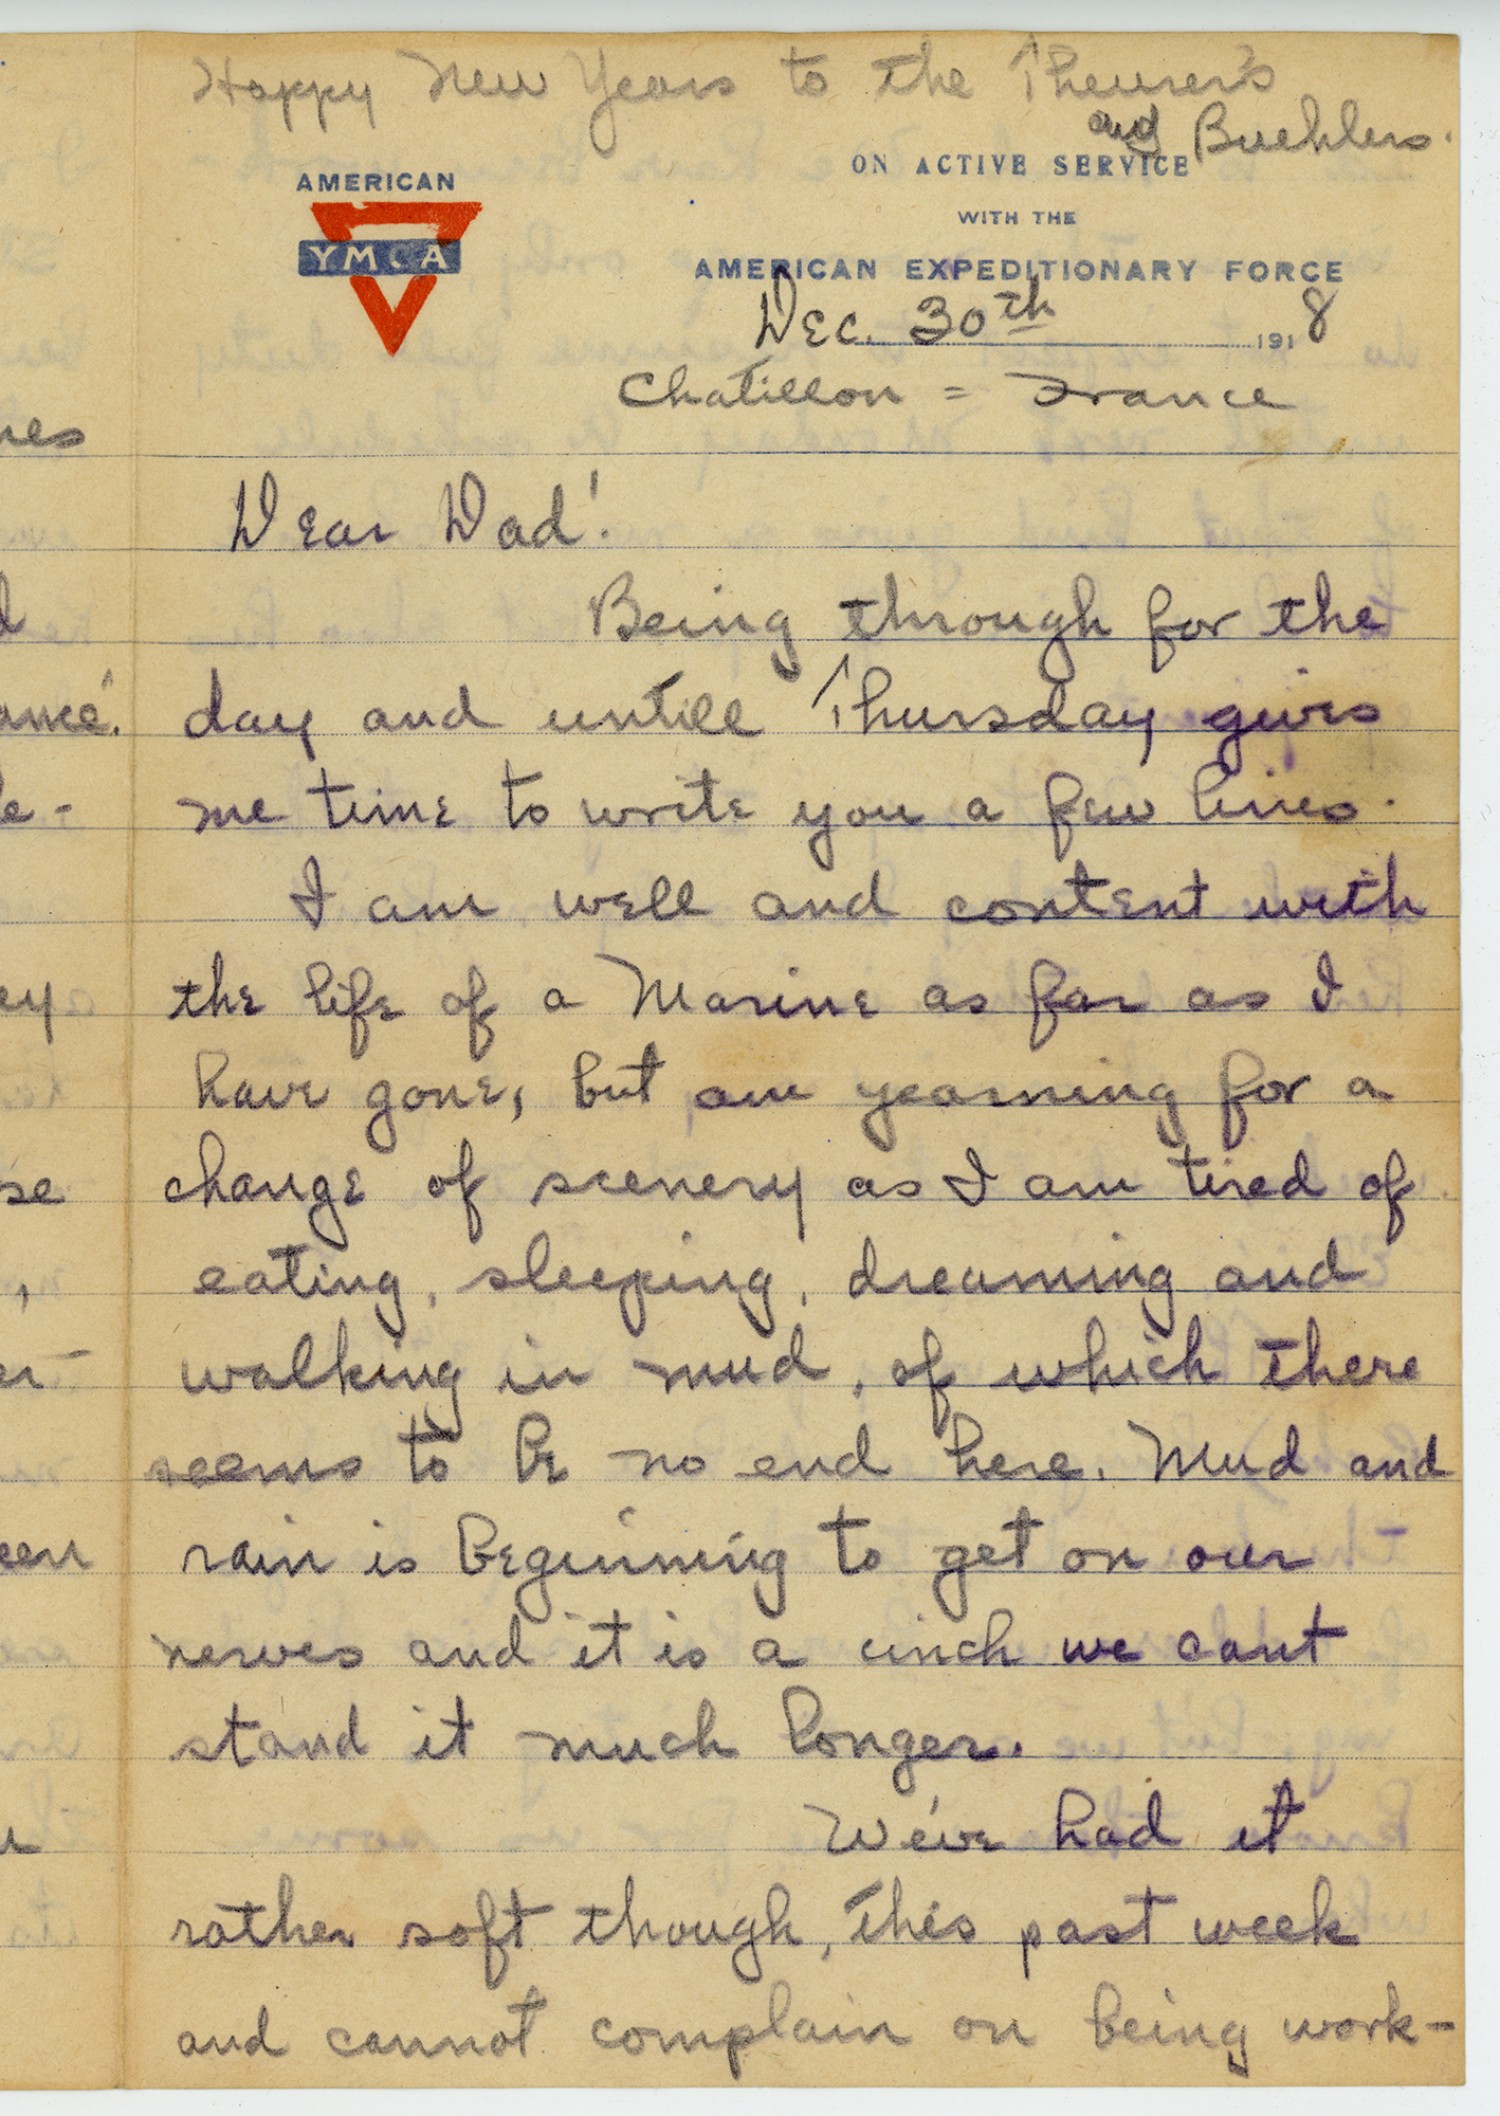 Happy New Years to the Theurer's
and Buehlers.
AMERICAN
YMCA
ON ACTIVE SERVICE
WITH THE
AMERICAN EXPEDITIONARY FORCE
Dec. 30th 1918
Chatillon = France
Dear Dad!
Being through for the
day and untill Thursday gives
me time to write you a few lines.
I am well and content with
the life of a Marine as far as I
have gone, but am yearning for a
change of scenery as I am tired of
eating, sleeping, dreaming and
walking in mud, of which there
seems to be no end here. Mud and
rain is beginning to get on our
nerves and it is a cinch we cant
stand it much longer.
We've had it
rather soft though, this past week
and cannot complain on being work-